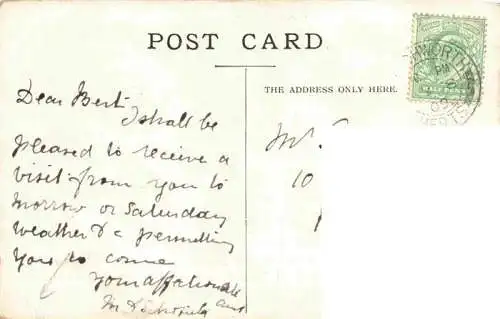 POST CARD
THE ADDRESS ONLY HERE.
Dear Bert
I shall be
pleased to receive a
visit from you to
morrow or Saturday
weather &c permitting
you to come
your affationate
aunt
HALF PENNY
Mr.
10